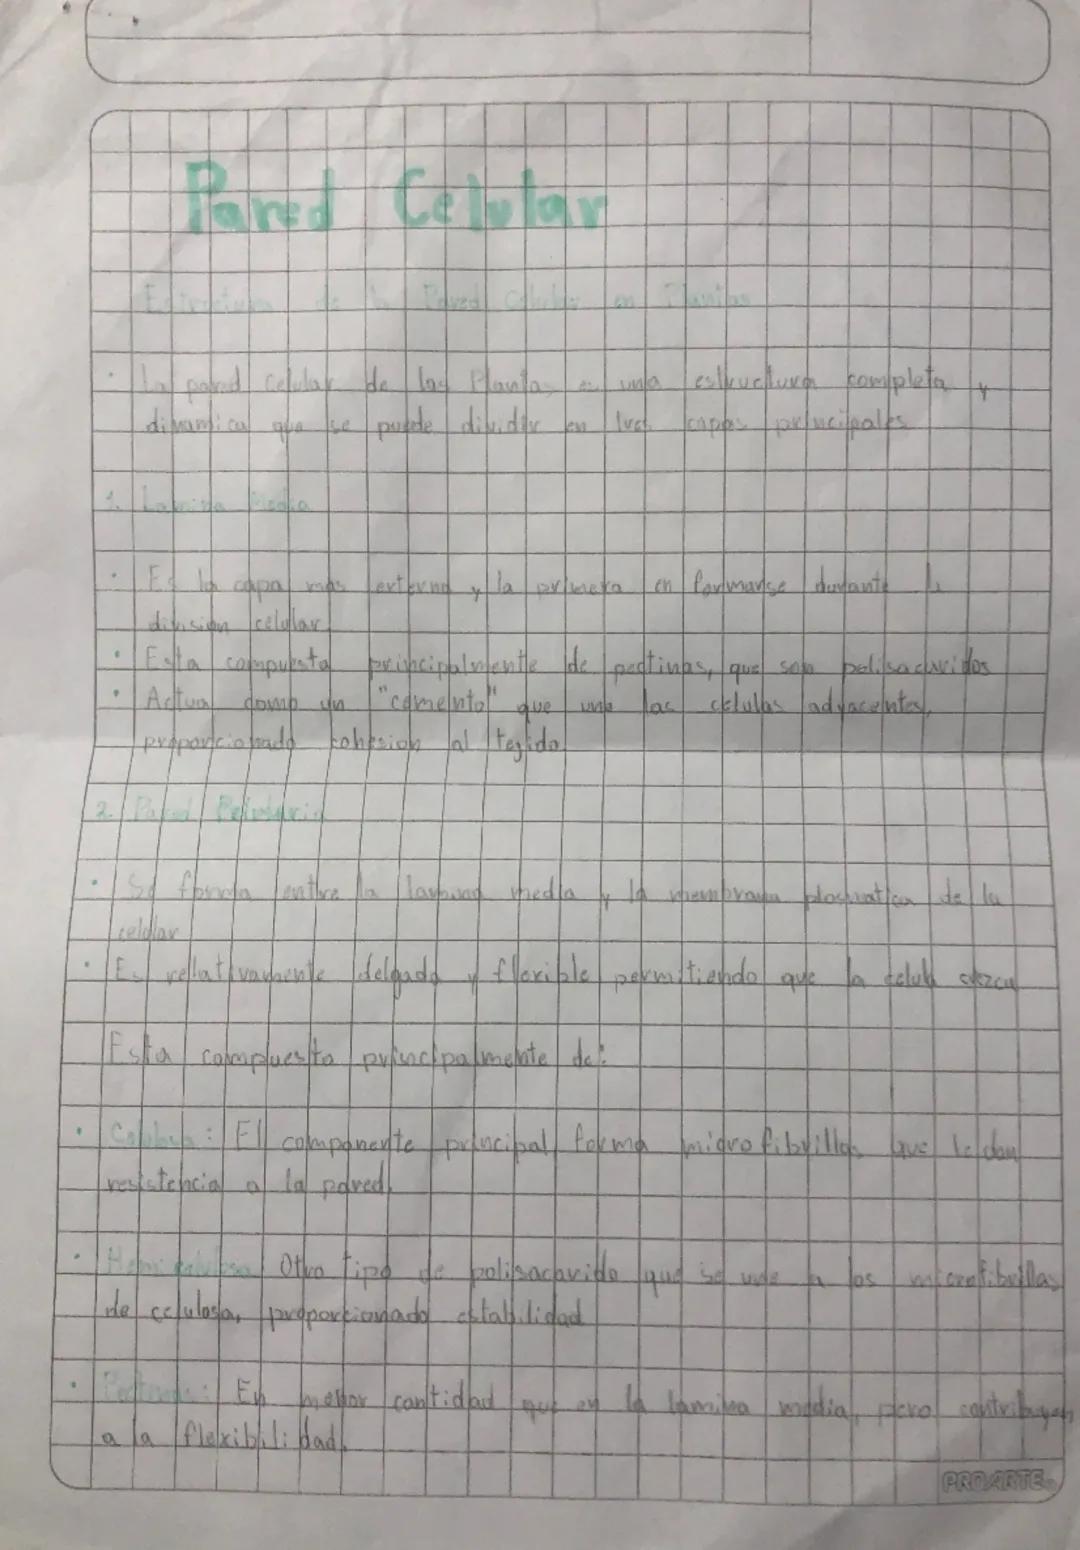 Pared Celular
Estructura de la Pared Celular en Plantas
· La pared celular de las Plantas es una estructura completa y
dinamica que se puede dividir en tres capas principales
1. Lamina Media
· Es la capa más externa y la primera en formarse durante la
division celular
· Esta compuesta principalmente de pectinas, que son polisacaridos
· Actua como un "cemento" que une las celulas adyacentes,
proporcionado cohesion al tejido
2. Pared
· Se forma entre la lamina media y la membrana plasmatica de la
celular
· Es relativamente delgada y flexible permitiendo que la celula crezca
Esta compuesta principalmente de:
· Celulosa: El componente principal forma microfibrillas que le dan
resistencia a la pared,
· Hemicelulosa Otro tipo de polisacarido que se une a las microfibrillas
de celulosa, proporcionado estabilidad
· Pectinas: En menor cantidad que en la lamina media, pero contribuyen
a la flexibilidad.
PROARTE